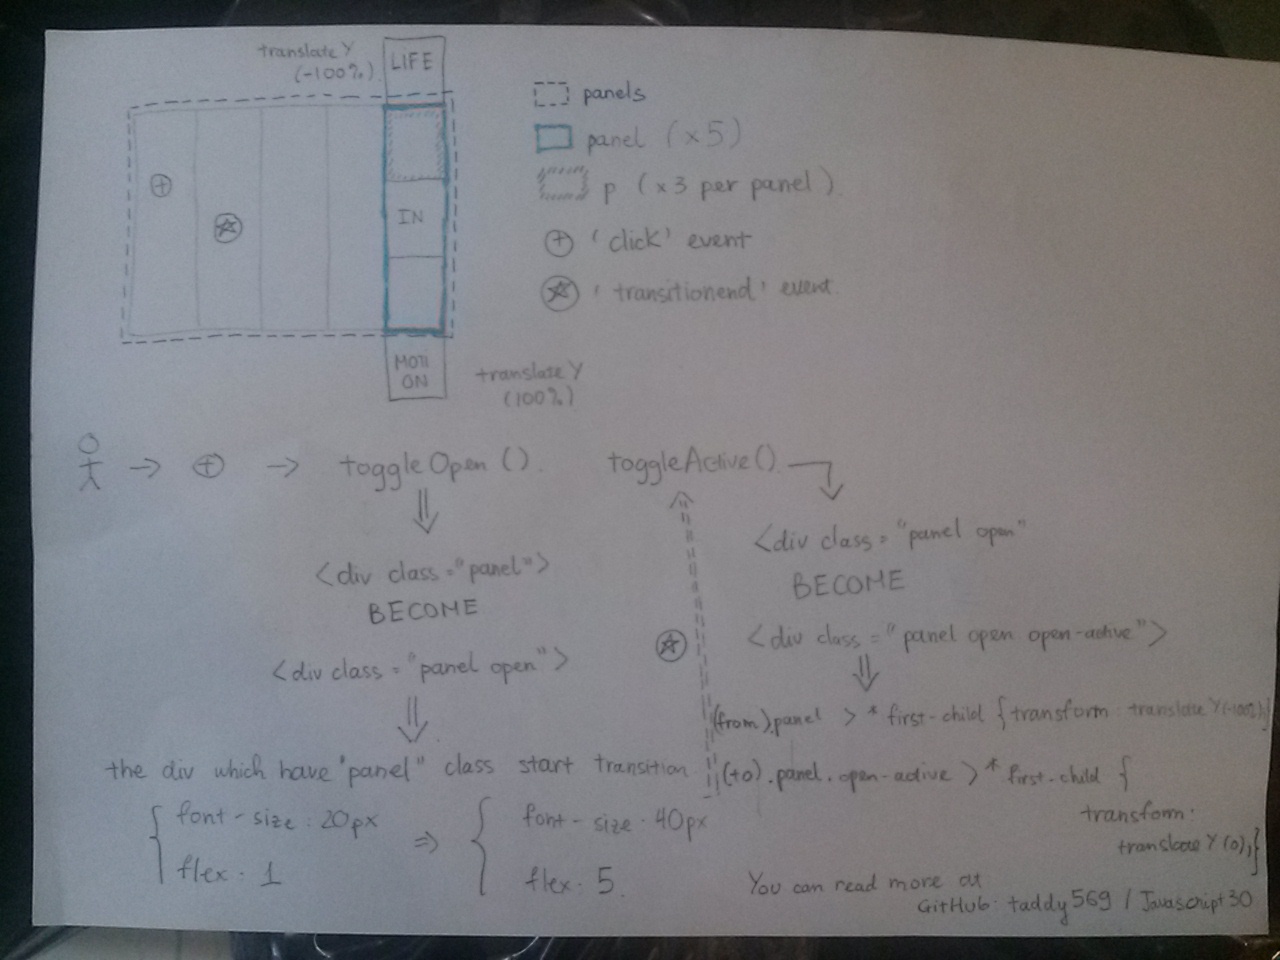 translate Y
(-100%)
LIFE
IN
MOTI
ON
translate Y
(100%)
panels
panel (x5)
p (x3 per panel)
'click' event
'transitionend' event
toggleOpen ()
<div class="panel">
BECOME
<div class="panel open">
the div which have "panel" class start transition
font-size: 20px
flex: 1
font-size: 40px
flex: 5
toggleActive()
<div class="panel open"
BECOME
<div class="panel open open-active">
(from).panel > * first-child {transform: translate Y(-100%);}
(to).panel.open-active > * first-child {
transform:
translate Y (0);}
You can read more at
GitHub: taddy569 / Javascript30